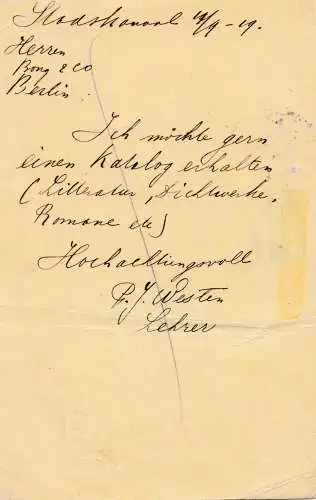 Stadskanaal 19/9-19.
Herren
Bong & Co
Berlin.
Ich möchte gern
einen Katalog erhalten
(Litteratur, Dichtwerke,
Romane etc)
Hochachtungsvoll
P. J. Westen
Lehrer